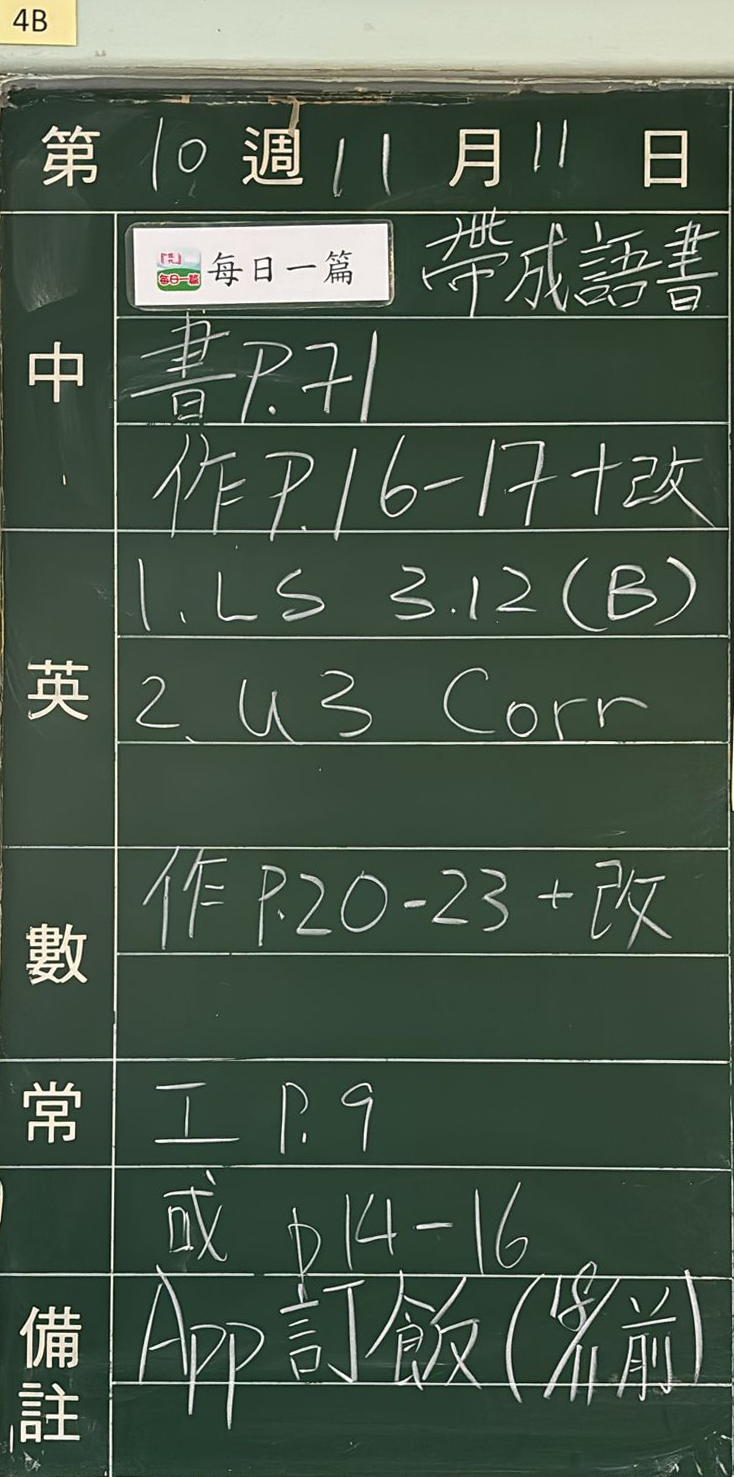 4B
第 10 週 11 月 11 日
中
每日一篇 帶成語書
書P.71
作P.16-17+改
英
1. LS 3.12(B)
2. U3 Corr
數
作 P.20-23 + 改
常
工 P.9
或 p14-16
備註
App訂飯(18/11前)